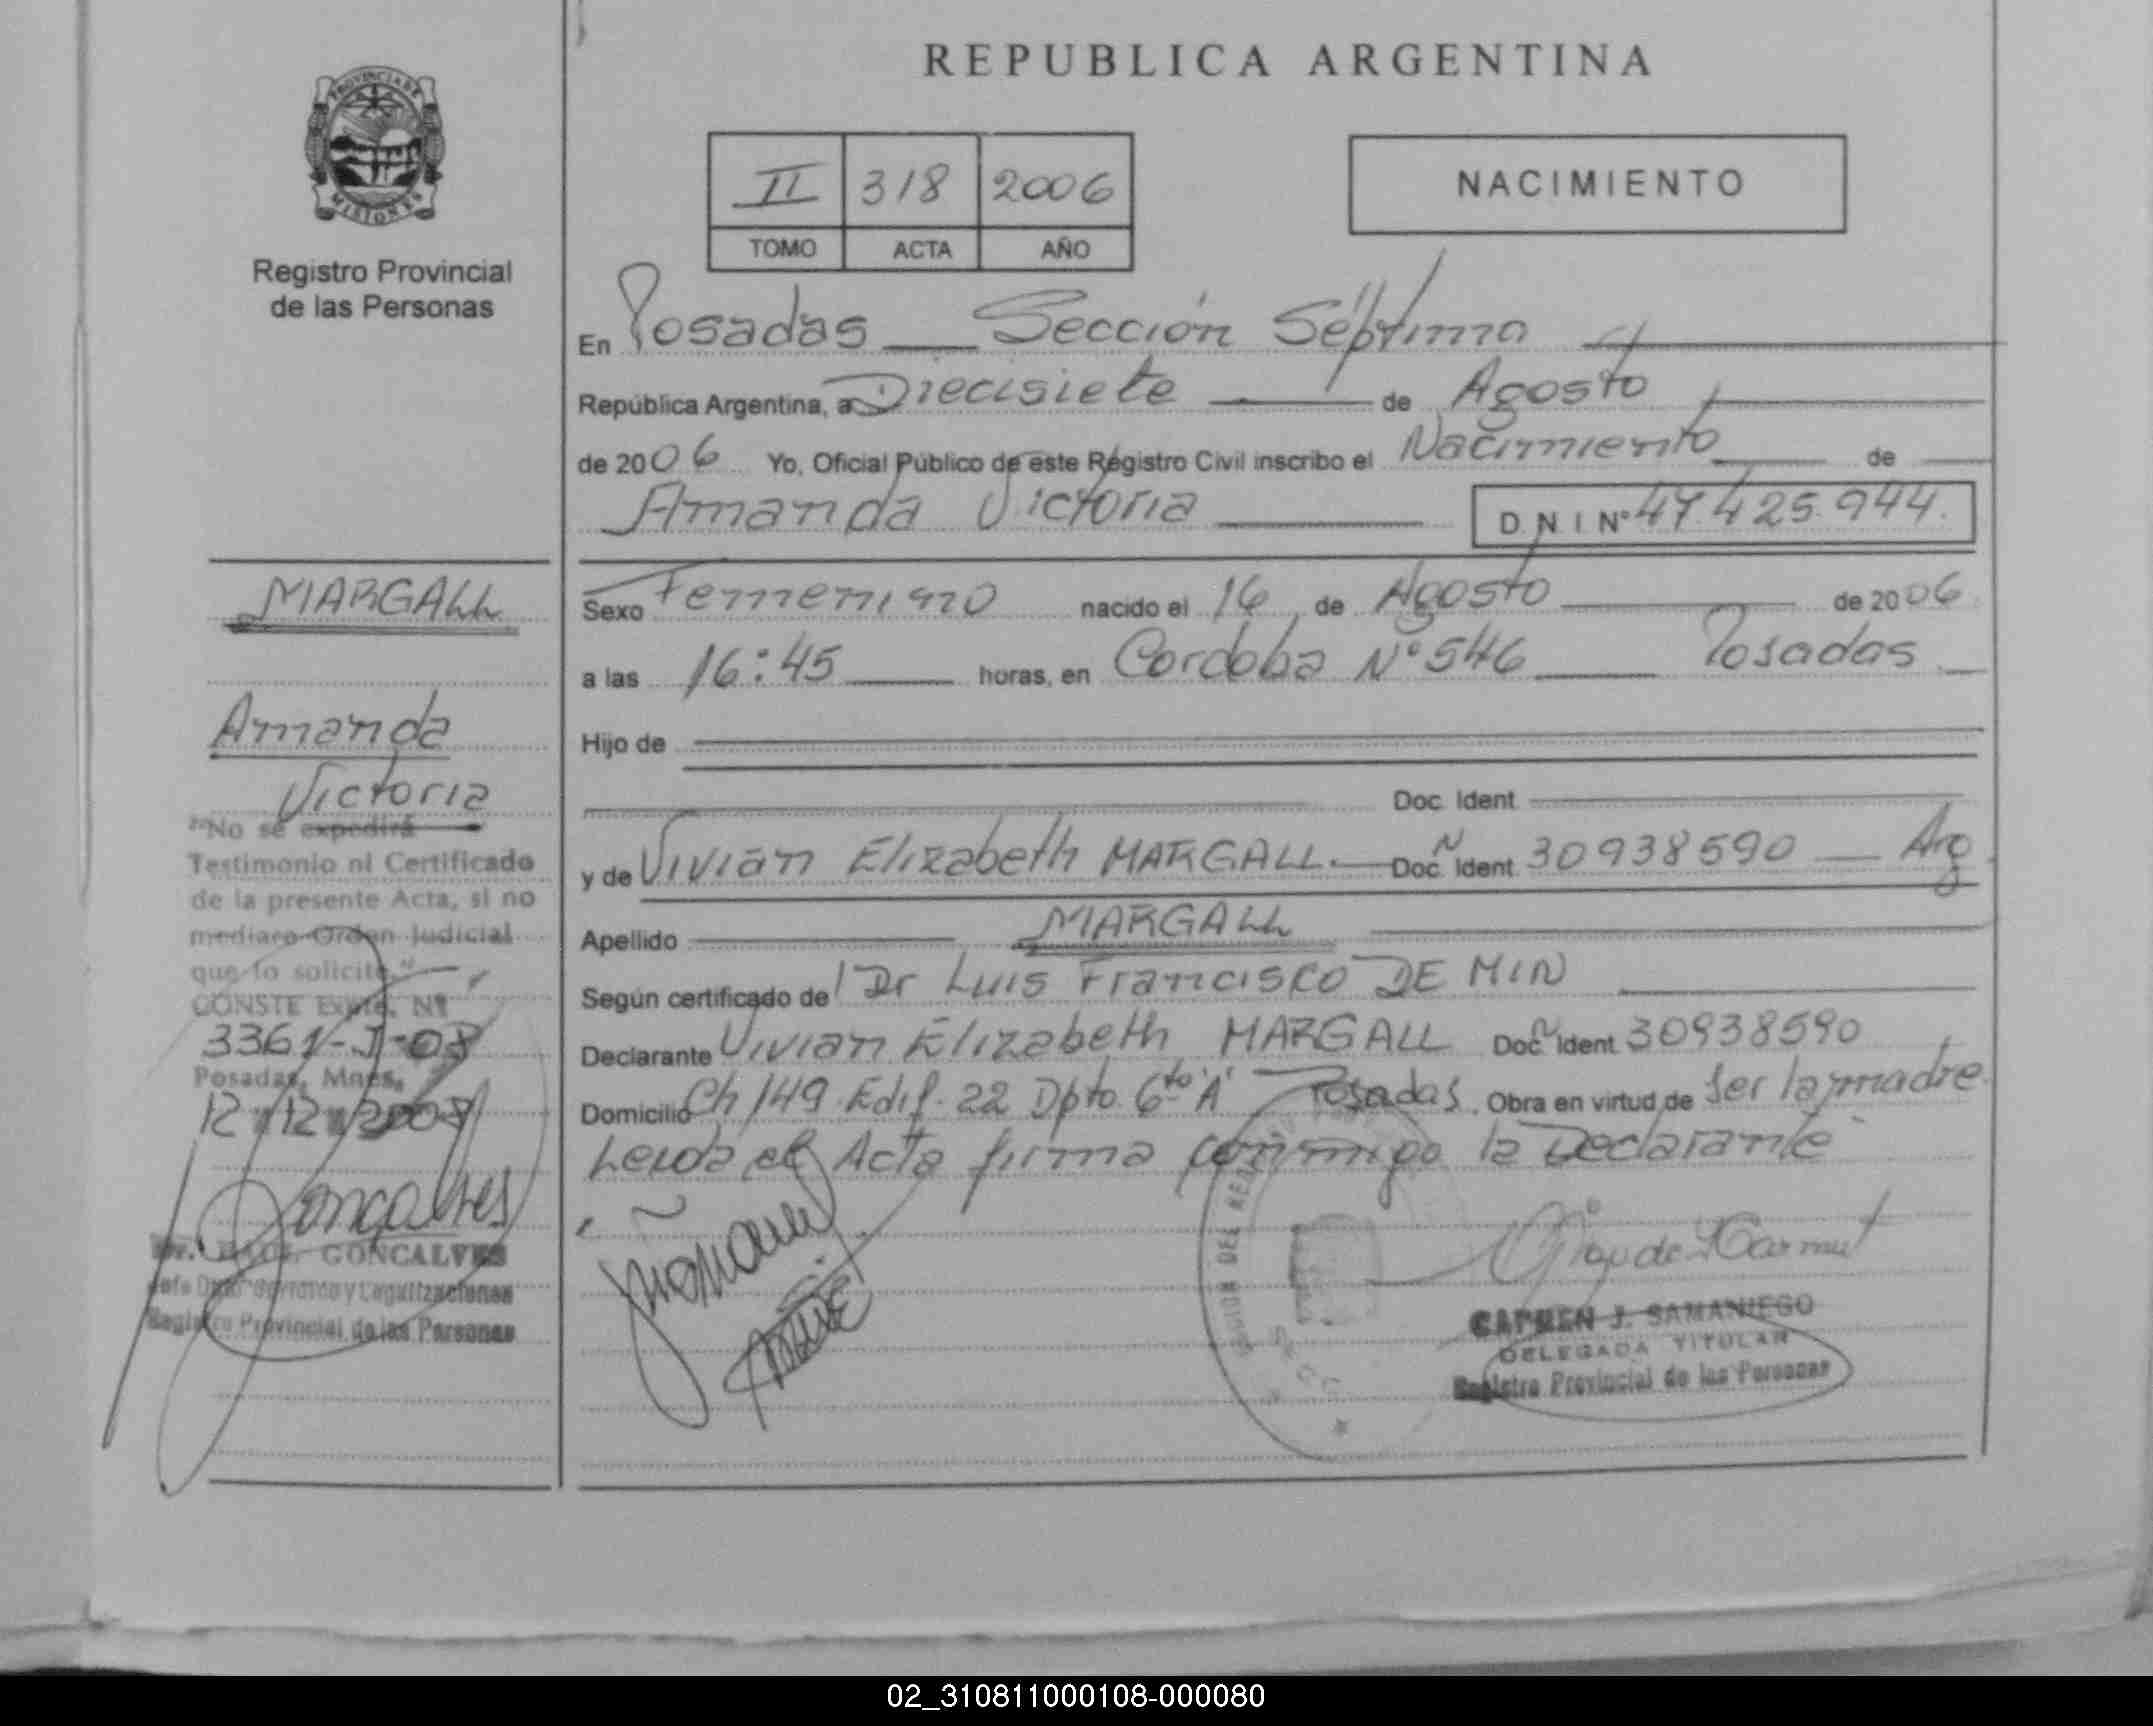 REPUBLICA ARGENTINA
PROVINCIA DE
MISIONES
Registro Provincial
de las Personas
II 318 2006
TOMO ACTA AÑO
NACIMIENTO
En Posadas Sección Séptima
República Argentina, a Diecisiete de Agosto
de 2006 Yo, Oficial Público de este Registro Civil inscribo el Nacimiento de
Amanda Victoria D N I Nº 47.425.944.
Sexo Femenino nacido el 16 de Agosto de 2006
a las 16:45 horas, en Cordoba Nº 546 Posadas
Hijo de
Doc. Ident.
y de Vivian Elizabeth MARGALL. Doc. Ident. 30938590 Arg
Apellido MARGALL
Según certificado de Dr Luis Francisco DE MIN
Declarante Vivian Elizabeth MARGALL Doc. Ident. 30938590
Domicilio Ch 149 Edif. 22 Dpto. 6to "A" Posadas. Obra en virtud de ser la madre
Leida el Acta firma conmigo la Declarante
CARMEN J. SAMANIEGO
DELEGADA TITULAR
Registro Provincial de las Personas
MARGALL
Amanda
Victoria
"No se expedirá
Testimonio ni Certificado
de la presente Acta, si no
mediare Orden Judicial
que lo solicite."
CONSTE Expte. Nº
3361-J-08
Posadas, Mnes,
12/12/2008
Goncalves
Dr. RAUL GONCALVES
Registro Provincial de las Personas
02_310811000108-000080